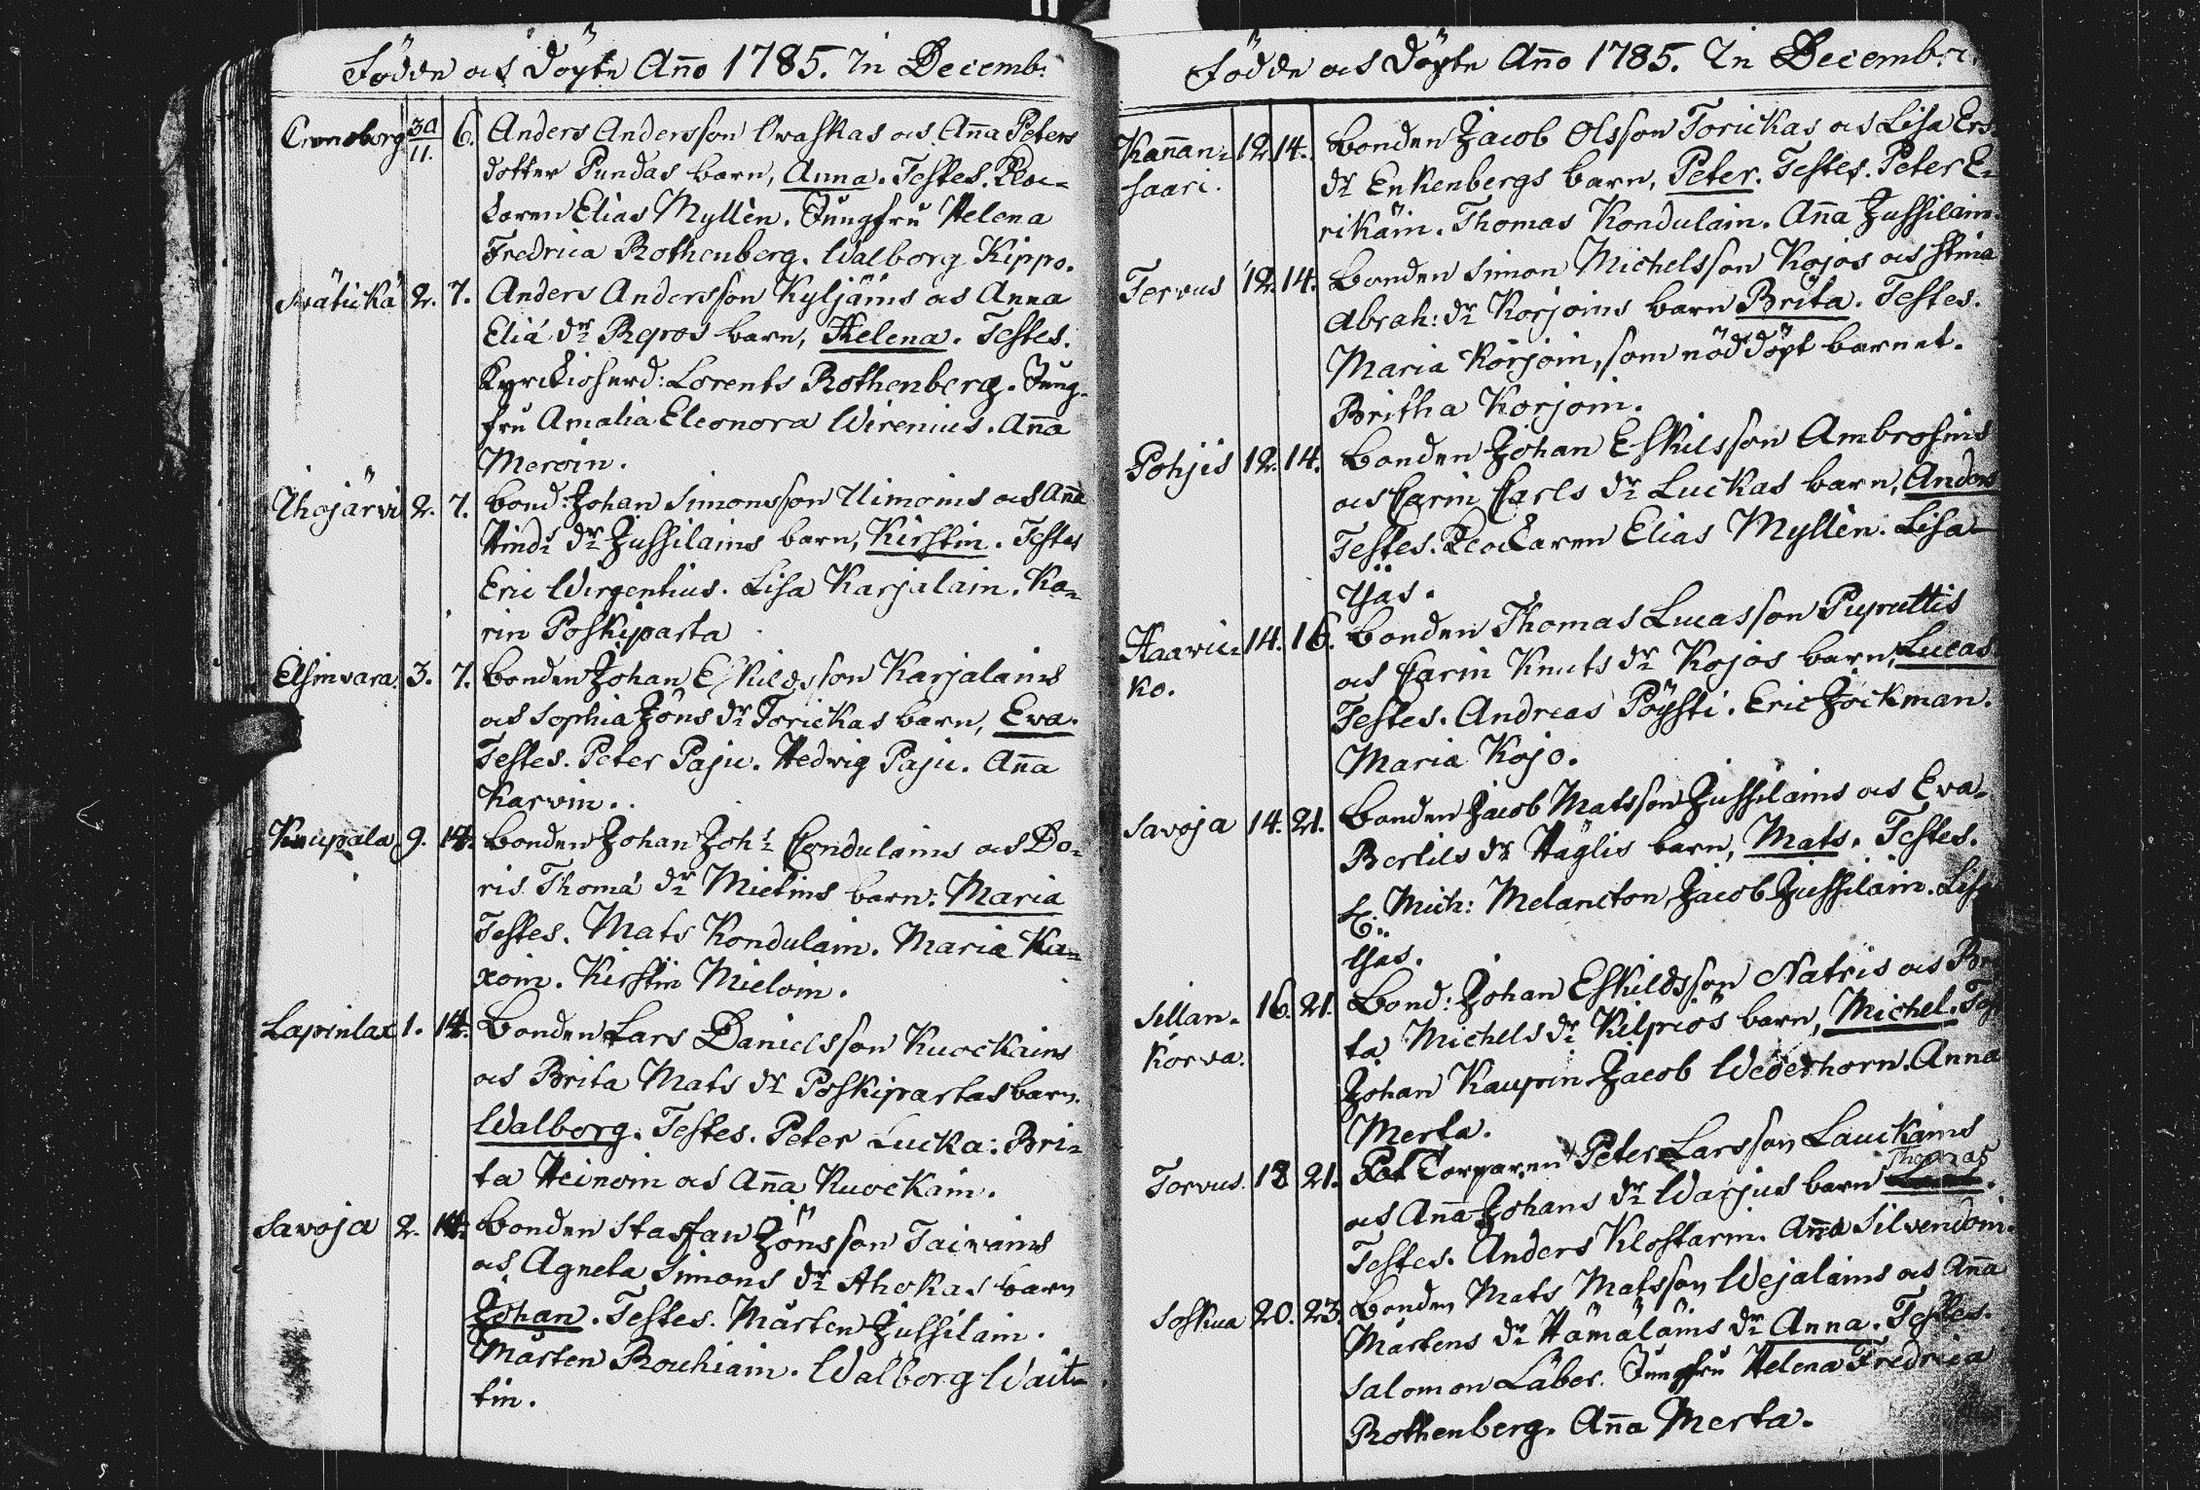 Födde och döpte Año 1785. In Decemb:
Croneborg 30/11. 6. Anders Andersson Orastkas och Aña Peters
dotter Pundas barn, Anna. Testes. Kloc=
karen Elias Myllèn. Jungfru Helena
Fredrica Rothenberg. Walborg Kippo.
2. 7. Anders Andersson Kyljäins och Anna
Eliæ dr Repos barn, Helena. Testes.
Kyrckioherd: Lorents Rothenberg. Jung-
fru Amalia Eleonora Wirenius. Aña
Meroin.
Ihojärvi 2. 7. bond: Johan Simonsson Uimoins och Aña
Hinds dr Jussilains barn, Kirstin. Testes
Eric Wirgentius. Lisa Karjalain. Ka=
rin Poskiparta
Elsinvara. 3. 7. bonden Johan Eskildsson Karjalains
och Sophia Jöns dr Torickas barn, Eva.
Testes. Peter Paju. Hedvig Paju. Aña
Karvin.
Kaupala 9. 14. bonden Johan Joh: Condulains och Do=
ris Thomæ dr Mietins barn: Maria
Testes. Mats Kondulain. Maria Ka=
xoin. Kirstin Mieloin.
Lapinlax 1. 14. bonden Lars Danielsson Kuockains
och Brita Mats dr Poskipartas barn.
Walborg. Testes. Peter Lucka: Bri=
ta Heinoin och Aña Kuockain.
Savoja 2. 14. bonden Staffan Jönsson Taivains
och Agneta Simons dr Ahokas barn
Johan. Testes. Mårten Jussilain.
Mårten Rouhiain. Walborg Wait=
tin.
Födde och döpte Año 1785. In Decemb:r
Kañan= 12. 14. bonden Jacob Olsson Torickas och Lisa Ers
saari. dr Enkenbergs barn, Peter. Testes. Peter E=
rikäin. Thomas Kondulain. Aña Jussilain.
Tervus 12. 14. bonden Simon Michelsson Kojos och Stina
Abrah: dr Korjoins barn Brita. Testes.
Maria Korjoin, som nöddöpt barnet.
Britha Korjoin.
Pohjis 12. 14. bonden Johan Eskilsson Ambrosius
och Carin Carls dr Luckas barn, Anders
Testes. Klockaren Elias Myllèn. Lisa
Yjas.
Haavic= 14. 16. bonden Thomas Lucasson Pyruttis
ko. och Carin Knuts dr Kojos barn, Lucas
Testes. Andreas Pöysti. Eric Jockman.
Maria Kojo.
Savoja 14. 21. bonden Jacob Matsson Jussilains och Eva
Bertils dr Häglis barn, Mats. Testes.
Mich: Melancton, Jacob Jussilain. Lisa
Yjas.
Sillan= 16. 21. Bond: Johan Eskildsson Natris och Bri
korva. ta Michels dr Kilpiös barn, Michel. Tes
Johan Kaupin. Jacob Wederhorn. Anna
Merta.
Torvus. 18 21. Torparen Peter Larsson Lauckains
och Aña Johans dr Warjus barn Thomas.
Testes. Anders Klostarin. Aña Silvendoin.
Soskua 20. 23. bonden Mats Matsson Wejalains och Aña
Mårtens dr Hämäläins dr Anna. Testes.
Salomon Låber. Jungfru Helena Fredrica
Rothenberg. Aña Merta.